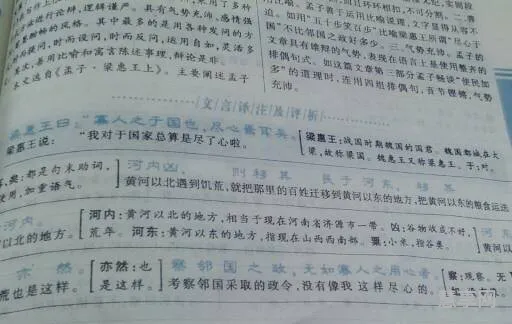 进行论辩，逻辑谨严。具有气势充沛、感情强
的风格。其中最多的是用各种发问的方
问，时而设问，时而反问，运用自如，灵活多
，善用比喻和寓言陈述事理，辩论是非。
本文选自《孟子·梁惠王上》。主要阐述孟子
而过环环相扣，不可分割。二、善
迫。如用“五十步笑百步”比喻梁惠王所谓“尽心于
国”不比邻国之政好多少。三、气势充沛。孟子的
文章具有雄辩的气势，表现在语言上是使用整齐的
排偶句式。如这篇文章第三部分孟子畅谈“使民加
多”的道理时，连用四组排偶句，音节铿锵，气势
充沛。
文言译注及评析
梁惠王曰：“寡人之于国也，尽心焉耳矣。
梁惠王说：“我对于国家总算是尽了心啦。
梁惠王：战国时期魏国的国君。魏国都城在大
梁，故称梁国。魏惠王又称梁惠王。于：对。
矣：都是句末助词，
使用，加重语气。
河内凶，则移其民于河东，移其
黄河以北遇到饥荒，就把那里的百姓迁移到黄河以东的地方，把黄河以东的粮食运送
河内。
以北的地方。
河内：黄河以北的地方，相当于现在河南省济源市一带。凶：谷物收成不好，
荒年。河东：黄河以东的地方，指现在山西西南部。粟：小米，指谷类。
河东
黄河以
亦然。
荒也是这样。
亦然：也
是这样。
察邻国之政，无如寡人之用心者。
考察邻国采取的政令，没有像我这样尽心的。
察：观察。无